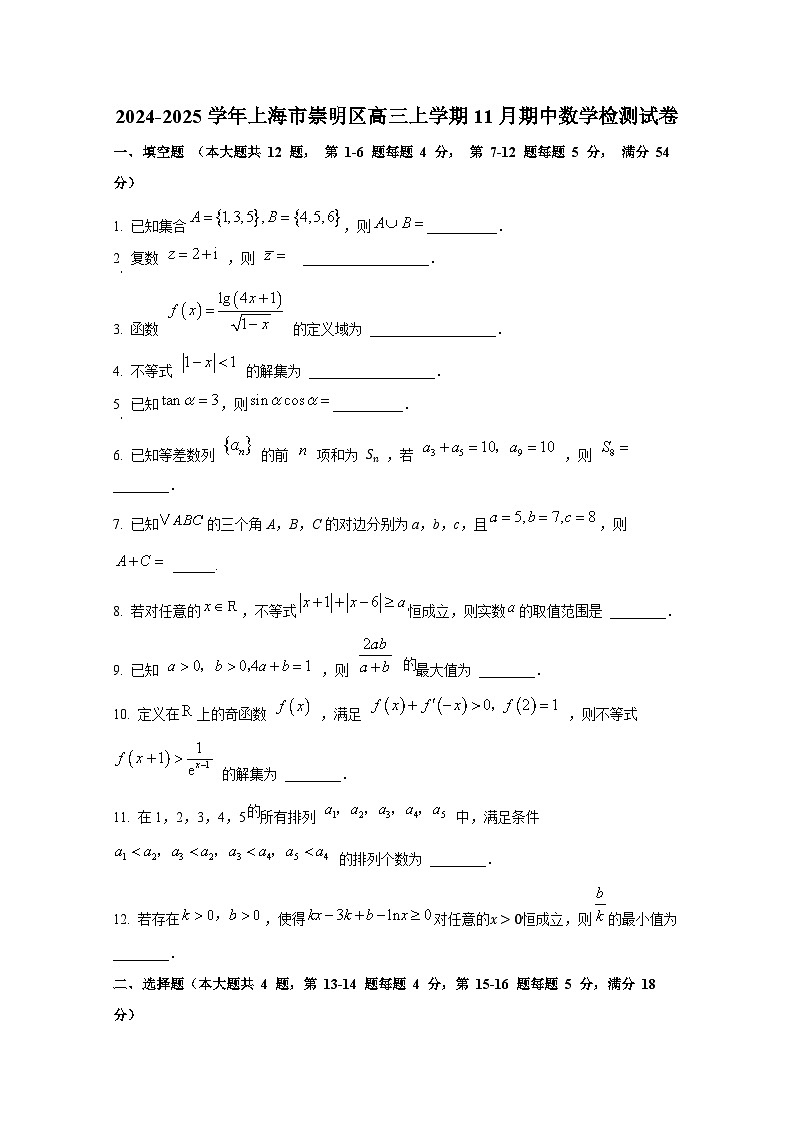 2024-2025 学年上海市崇明区高三上学期 11 月期中数学检测试卷
一、填空题 （本大题共 12 题， 第 1-6 题每题 4 分， 第 7-12 题每题 5 分， 满分 54
分）
1. 已知集合 A={1,3,5},B={4,5,6}，则 A∪B=__________.
2. 复数 z=2+i ，则 z̅= __________________.
3. 函数 f(x)=lg(4x+1)/√(1−x) 的定义域为 __________________.
4. 不等式 |1−x|<1 的解集为 __________________.
5. 已知 tan α=3，则 sin α cos α=__________.
6. 已知等差数列 {aₙ} 的前 n 项和为 Sₙ ，若 a₃+a₅=10，a₉=10 ，则 S₈=
________.
7. 已知▽ABC 的三个角 A，B，C 的对边分别为 a，b，c，且 a=5,b=7,c=8，则
A+C= ______.
8. 若对任意的 x∈R，不等式 |x+1|+|x−6|≥a 恒成立，则实数 a 的取值范围是 ________.
9. 已知 a>0，b>0,4a+b=1 ，则 2ab/(a+b) 的最大值为 ________.
10. 定义在 R 上的奇函数 f(x) ，满足 f(x)+f′(−x)>0，f(2)=1 ，则不等式
f(x+1)>1/eˣ⁻¹ 的解集为 ________.
11. 在 1，2，3，4，5的所有排列 a₁，a₂，a₃，a₄，a₅ 中，满足条件
a₁<a₂，a₃<a₂，a₃<a₄，a₅<a₄ 的排列个数为 ________.
12. 若存在 k>0，b>0，使得 kx−3k+b−lnx≥0 对任意的x > 0恒成立，则 b/k 的最小值为
________.
二、选择题（本大题共 4 题，第 13-14 题每题 4 分，第 15-16 题每题 5 分，满分 18
分）